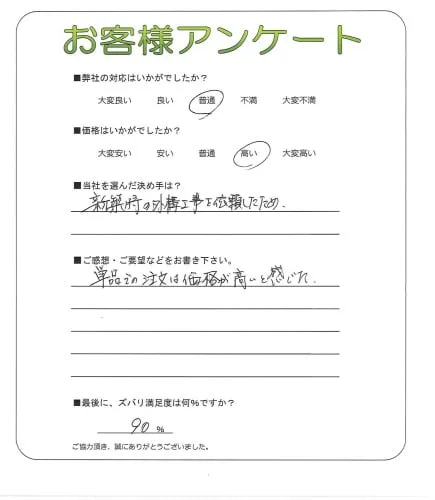 お客様アンケート
■弊社の対応はいかがでしたか？
大変良い 良い 普通 不満 大変不満
■価格はいかがでしたか？
大変安い 安い 普通 高い 大変高い
■当社を選んだ決め手は？
新築時の外構工事を依頼したため.
■ご感想・ご要望などをお書き下さい。
単品での注文は価格が高いと感じた.
■最後に、ズバリ満足度は何％ですか？
90 ％
ご協力頂き、誠にありがとうございました。